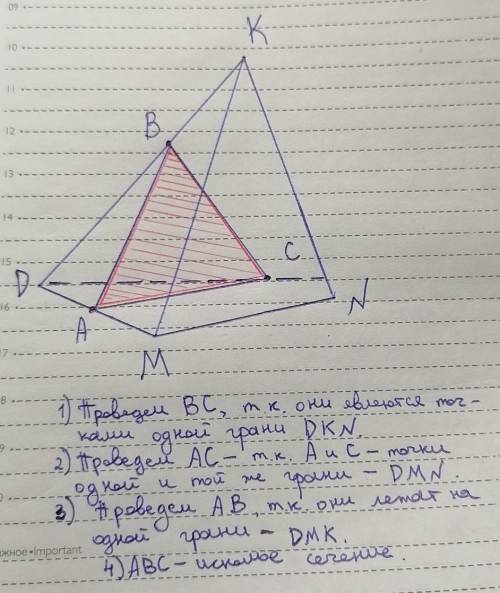 09
10
11
12
13
14
15
16
17
8
9
0
K
B
C
D
A
N
M
1) Проведем BC, т.к. они явлеются точ-
ками одной грани DKN.
2) Проведем AC – т.к. A и C – точки
одной и той же грани – DMN.
3) Проведем AB, т.к. они лежат на
одной грани – DMK.
4) ABC – искомое сечение.
жное • Important